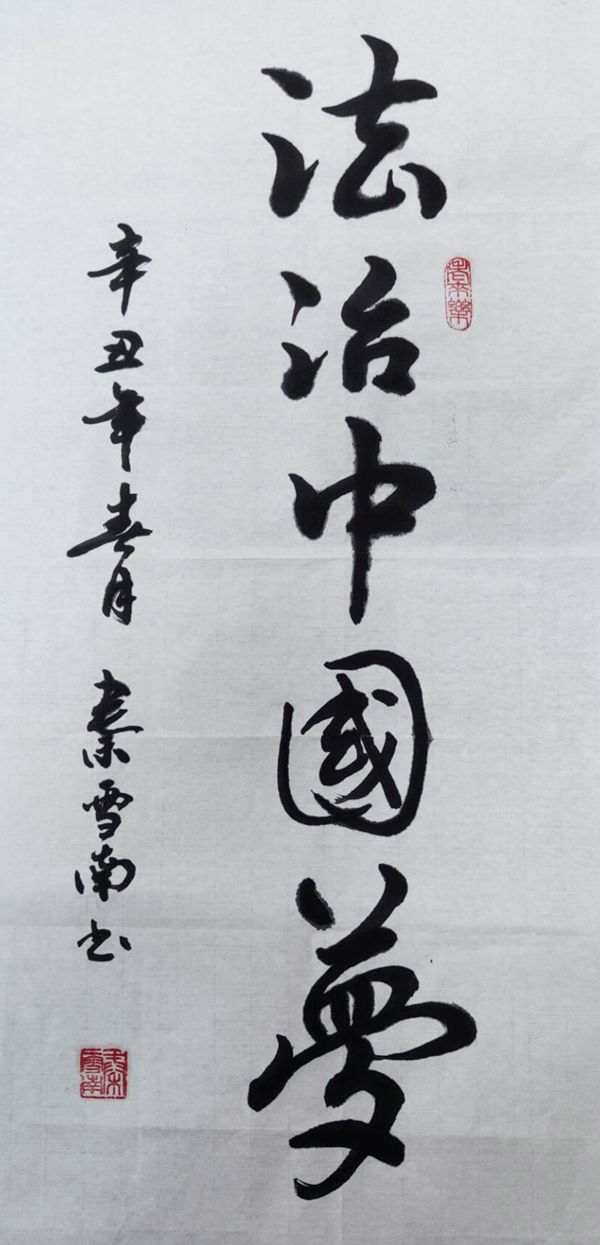 法治中國夢
辛丑年春月 秦雪南书
秦雪南